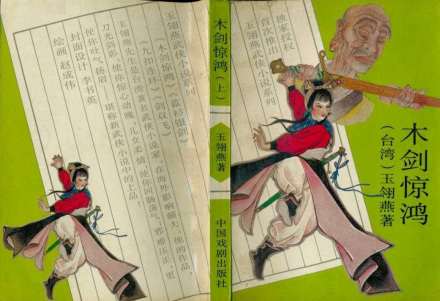 独家授权
首次推出
玉翎燕武侠小说系列
木剑惊鸿
(台湾)玉翎燕著
木剑惊鸿(上)
玉翎燕著
中国戏剧出版社
玉翎燕武侠小说系列
《木剑惊鸿》 《蓝衫银剑》
《九扣连环》 剑双飞》
玉翎燕先生是台湾著名武侠小说家,在海外影响颇大,他的作品
刀光剑影使你惊心动魄,儿女柔情使你回肠荡气,邪难压正更
使你吐气扬眉,堪称新武侠小说中的上品。
封面设计 李书英
绘画 赵成伟